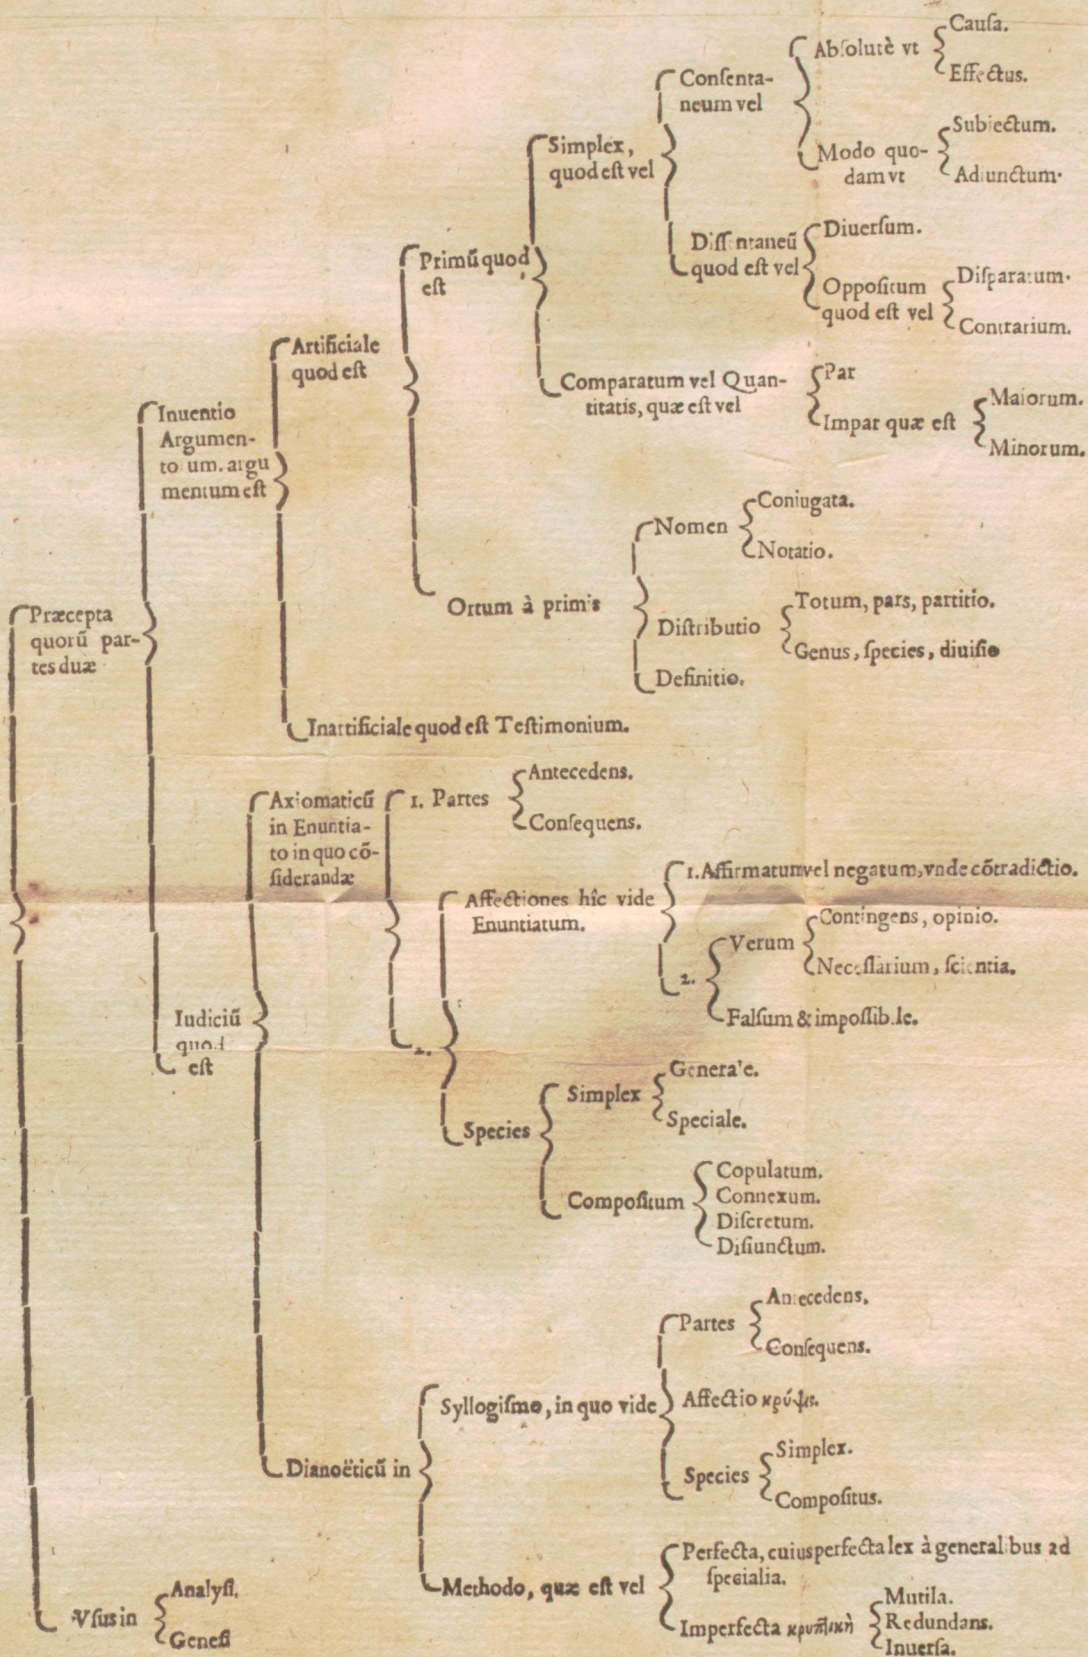 Præcepta
quorū par-
tes duæ
Inuentio
Argumen-
torum. argu
mentum est
Artificiale
quod est
Primū quod
est
Simplex,
quod est vel
Consenta-
neum vel
Absolutè vt
Causa.
Effectus.
Modo quo-
dam vt
Subiectum.
Adiunctum.
Dissentaneū
quod est vel
Diuersum.
Oppositum
quod est vel
Disparatum.
Contrarium.
Comparatum vel Quan-
titatis, quæ est vel
Par
Impar quæ est
Maiorum.
Minorum.
Ortum à primis
Nomen
Coniugata.
Notatio.
Distributio
Totum, pars, partitio.
Genus, species, diuisio
Definitio.
Inartificiale quod est Testimonium.
Iudiciū
quod
est
Axiomaticū
in Enuntia-
to in quo cō-
siderandæ
1. Partes
Antecedens.
Consequens.
2.
Affectiones hîc vide
Enuntiatum.
1. Affirmatum vel negatum, vnde cōtradictio.
2.
Verum
Contingens, opinio.
Necessarium, scientia.
Falsum & impossibile.
Species
Simplex
Generale.
Speciale.
Compositum
Copulatum.
Connexum.
Discretum.
Disiunctum.
Dianoëticū in
Syllogismo, in quo vide
Partes
Antecedens.
Consequens.
Affectio κρύψις.
Species
Simplex.
Compositus.
Methodo, quæ est vel
Perfecta, cuius perfecta lex à generalibus ad
specialia.
Imperfecta κρυπτικὴ
Mutila.
Redundans.
Inuersa.
Vsus in
Analysi.
Genesi